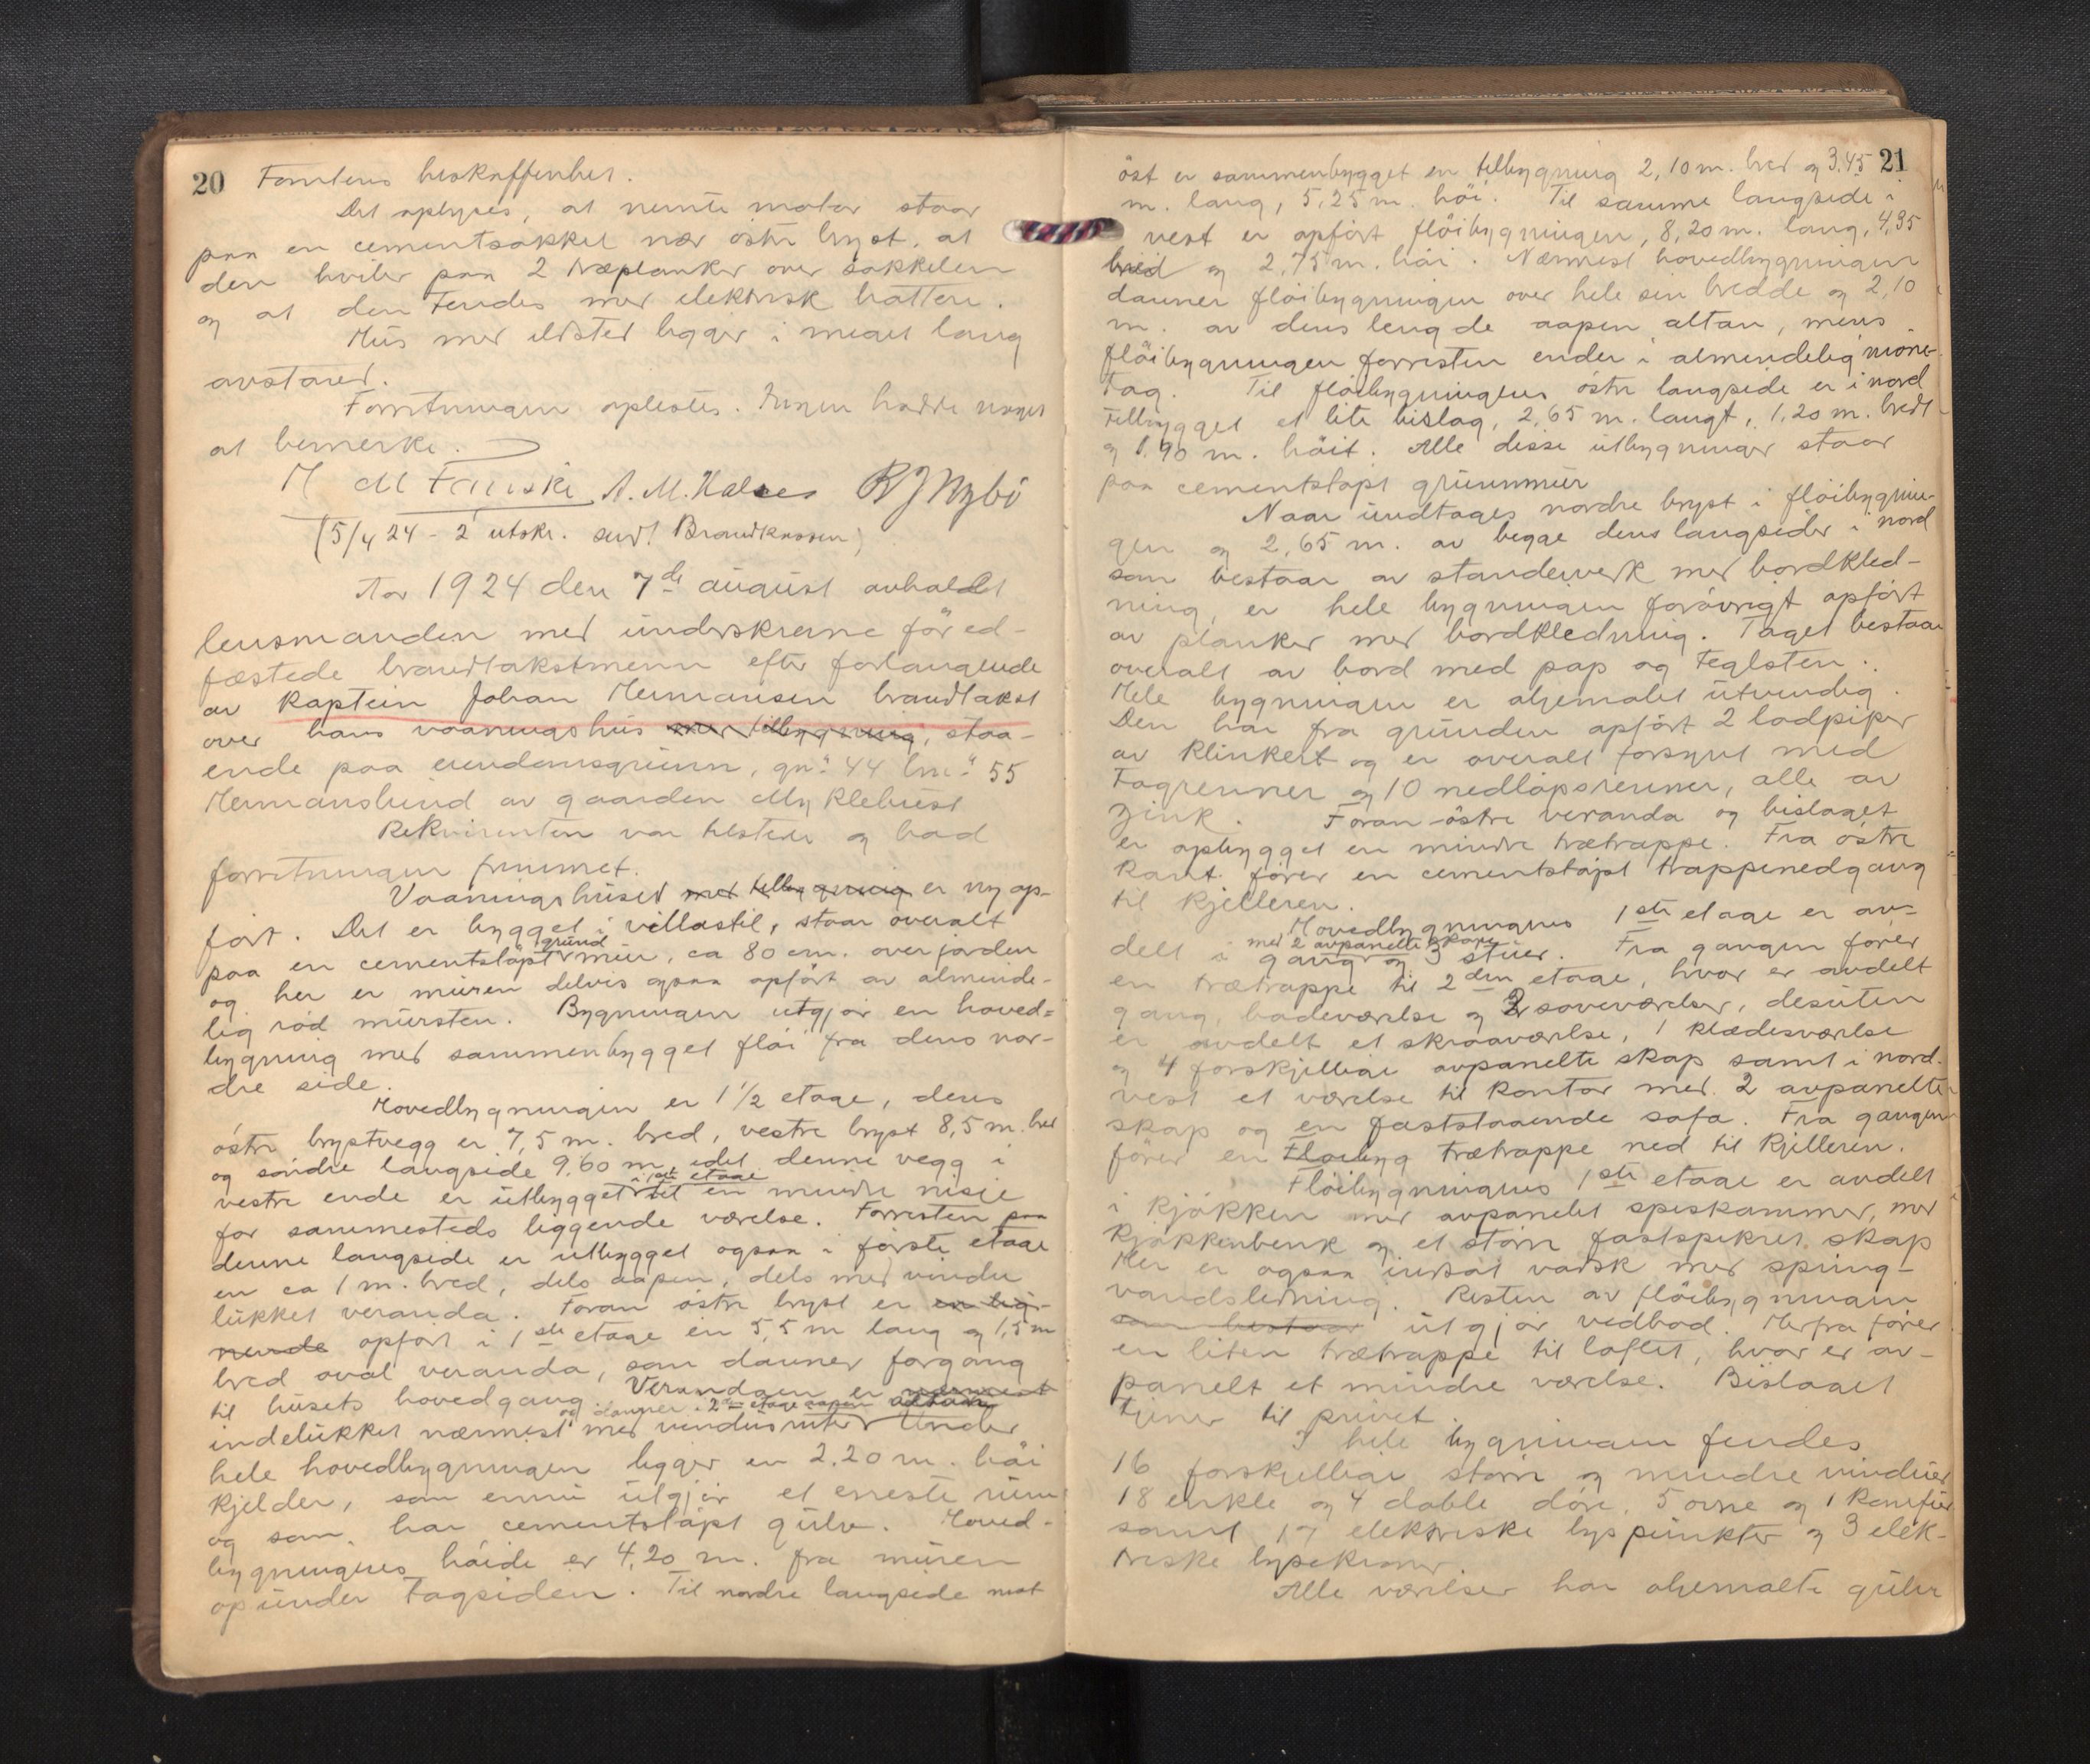 20 Tomtens beskaffenhet.
Det oplyses, at nevnte motor staar
paa en cementsokkel nær östre bryst, at
den hviler paa 2 træplanker over sokkelen
og at den tendes med elektrisk batteri.
Hus med ildsted ligger i meget lang
avstand.
Forretningen oplestes. Ingen hadde noget
at bemerke.
A. M. Halses R J Nybö
(5/4 24 - 2 utskr. sendt Brandkassen)
Aar 1924 den 7de august avholdt
lensmanden med underskrevne för ed-
fæstede brandtakstmenn efter forlangende
av Kaptein Johan Hermansen brandtakst
over hans vaaningshus med tilbygning, staa-
ende paa eiendomsgrunn, gn. 44 bn. 55
Hermanslund av gaarden Myklebust
Rekvirenten var tilstede og bad
forretningen fremmet.
Vaaningshuset med tilbygning er ny op-
fört. Det er bygget i villastil, staar overalt
grund
paa en cementstöpt mur, ca 80 cm. over jorden
og her er muren delvis ogsaa opfört av alminde-
lig röd mursten. Bygningen utgjör en hoved=
bygning med sammenbygget flöi fra dens nor-
dre side.
Hovedbygningen er 1 1/2 etage, dens
östre brystvegg er 7,5 m. bred, vestre bryst 8,5 m. bred
og söndre langside 9,60 m, idet denne vegg i
i 1ste etage
vestre ende er utbygget til en mindre nisje
for sammesteds liggende værelse. Forresten paa
denne langside er utbygget ogsaa i förste etage
en ca 1 m. bred, dels aapen, dels med vindu
lukket veranda. Foran östre bryst er en lig-
nende opfört i 1ste etage en 5,5 m lang og 1,5 m
bred oval veranda, som danner forgang
til husets hovedgang. Verandaen er nærmest
og danner i 2den etage aapen altan
indelukket nærmest med vindusruter Under
hele hovedbygningen ligger en 2.20 m. höi
kjelder, som ennu utgjör et eneste rum
og som har cementstöpt gulv. Hoved-
bygningens höide er 4,20 m. fra muren
op under tagsiden. Til nordre langside mot
21
öst er sammenbygget en tilbygning 2,10 m. bred og 3.45
m. lang, 5,25 m. höi. Til samme langside i
vest er opfört flöibygningen, 8,20 m. lang, 4,95
bred og 2,75 m. höi. Nærmest hovedbygningen
danner flöibygningen over hele sin bredde og 2,10
m. av dens lengde aapen altan, mens
flöibygningen forresten ender i almindelig möne-
tag. Til flöibygningens östre langside er i nord
tilbygget et lite bislag, 2,65 m. langt, 1,20 m. bredt
og 1.90 m. höit. Alle disse utbygninger staar
paa cementstöpt grunnmur
Naar undtages nordre bryst i flöibygnin-
gen og 2,65 m. av begge dens langsider i nord
som bestaar av stenderverk med bordkled-
ning, er hele bygningen forövrigt opfört
av planker med bordkledning. Taget bestaar
overalt av bord med pap og teglsten.
Hele bygningen er oljemalet utvendig.
Den har fra grunden opfört 2 lodpiper
av klinkert og er overalt forsynt med
Tagrenner og 10 nedlöpsrenner, alle av
zink. Foran östre veranda og bislaget
er opbygget en mindre trætrappe. Fra östre
kant förer en cementstöpt trappenedgang
til kjelleren.
Hovedbygningens 1ste etage er av-
med 2 avpanelte skape
delt i gang og 3 stuer. Fra gangen förer
en trætrappe til 2den etage, hvor er avdelt
gang, badeværelse og 3 soveværelser, desuten
er avdelt et skraaværelse, 1 klædesværelse
og 4 forskjellige avpanelte skap samt i nord-
vest et værelse til kontor med 2 avpanelte
skap og en faststaaende sofa. Fra gangen
förer en trætrappe ned til kjelleren.
Flöibygningens 1ste etage er avdelt
i kjökken med avpanelet spiskammer, med
kjökkenbenk og et större fastspikret skap
Her er ogsaa indsat vask med spring-
vandsledning. Resten av flöibygningen
som bestaar utgjör vedbod. Herfra förer
en liten trætrappe til loftet, hvor er av-
panelt et mindre værelse. Bislaget
tjener til privet.
I hele bygningen findes
16 forskjellige större og mindre vinduer
18 enkle og 4 doble döre, 5 ovne og 1 komfur
samt 17 elektriske lyspunkter og 3 elek-
triske lysekroner.
Alle værelser har oljemalte gulv